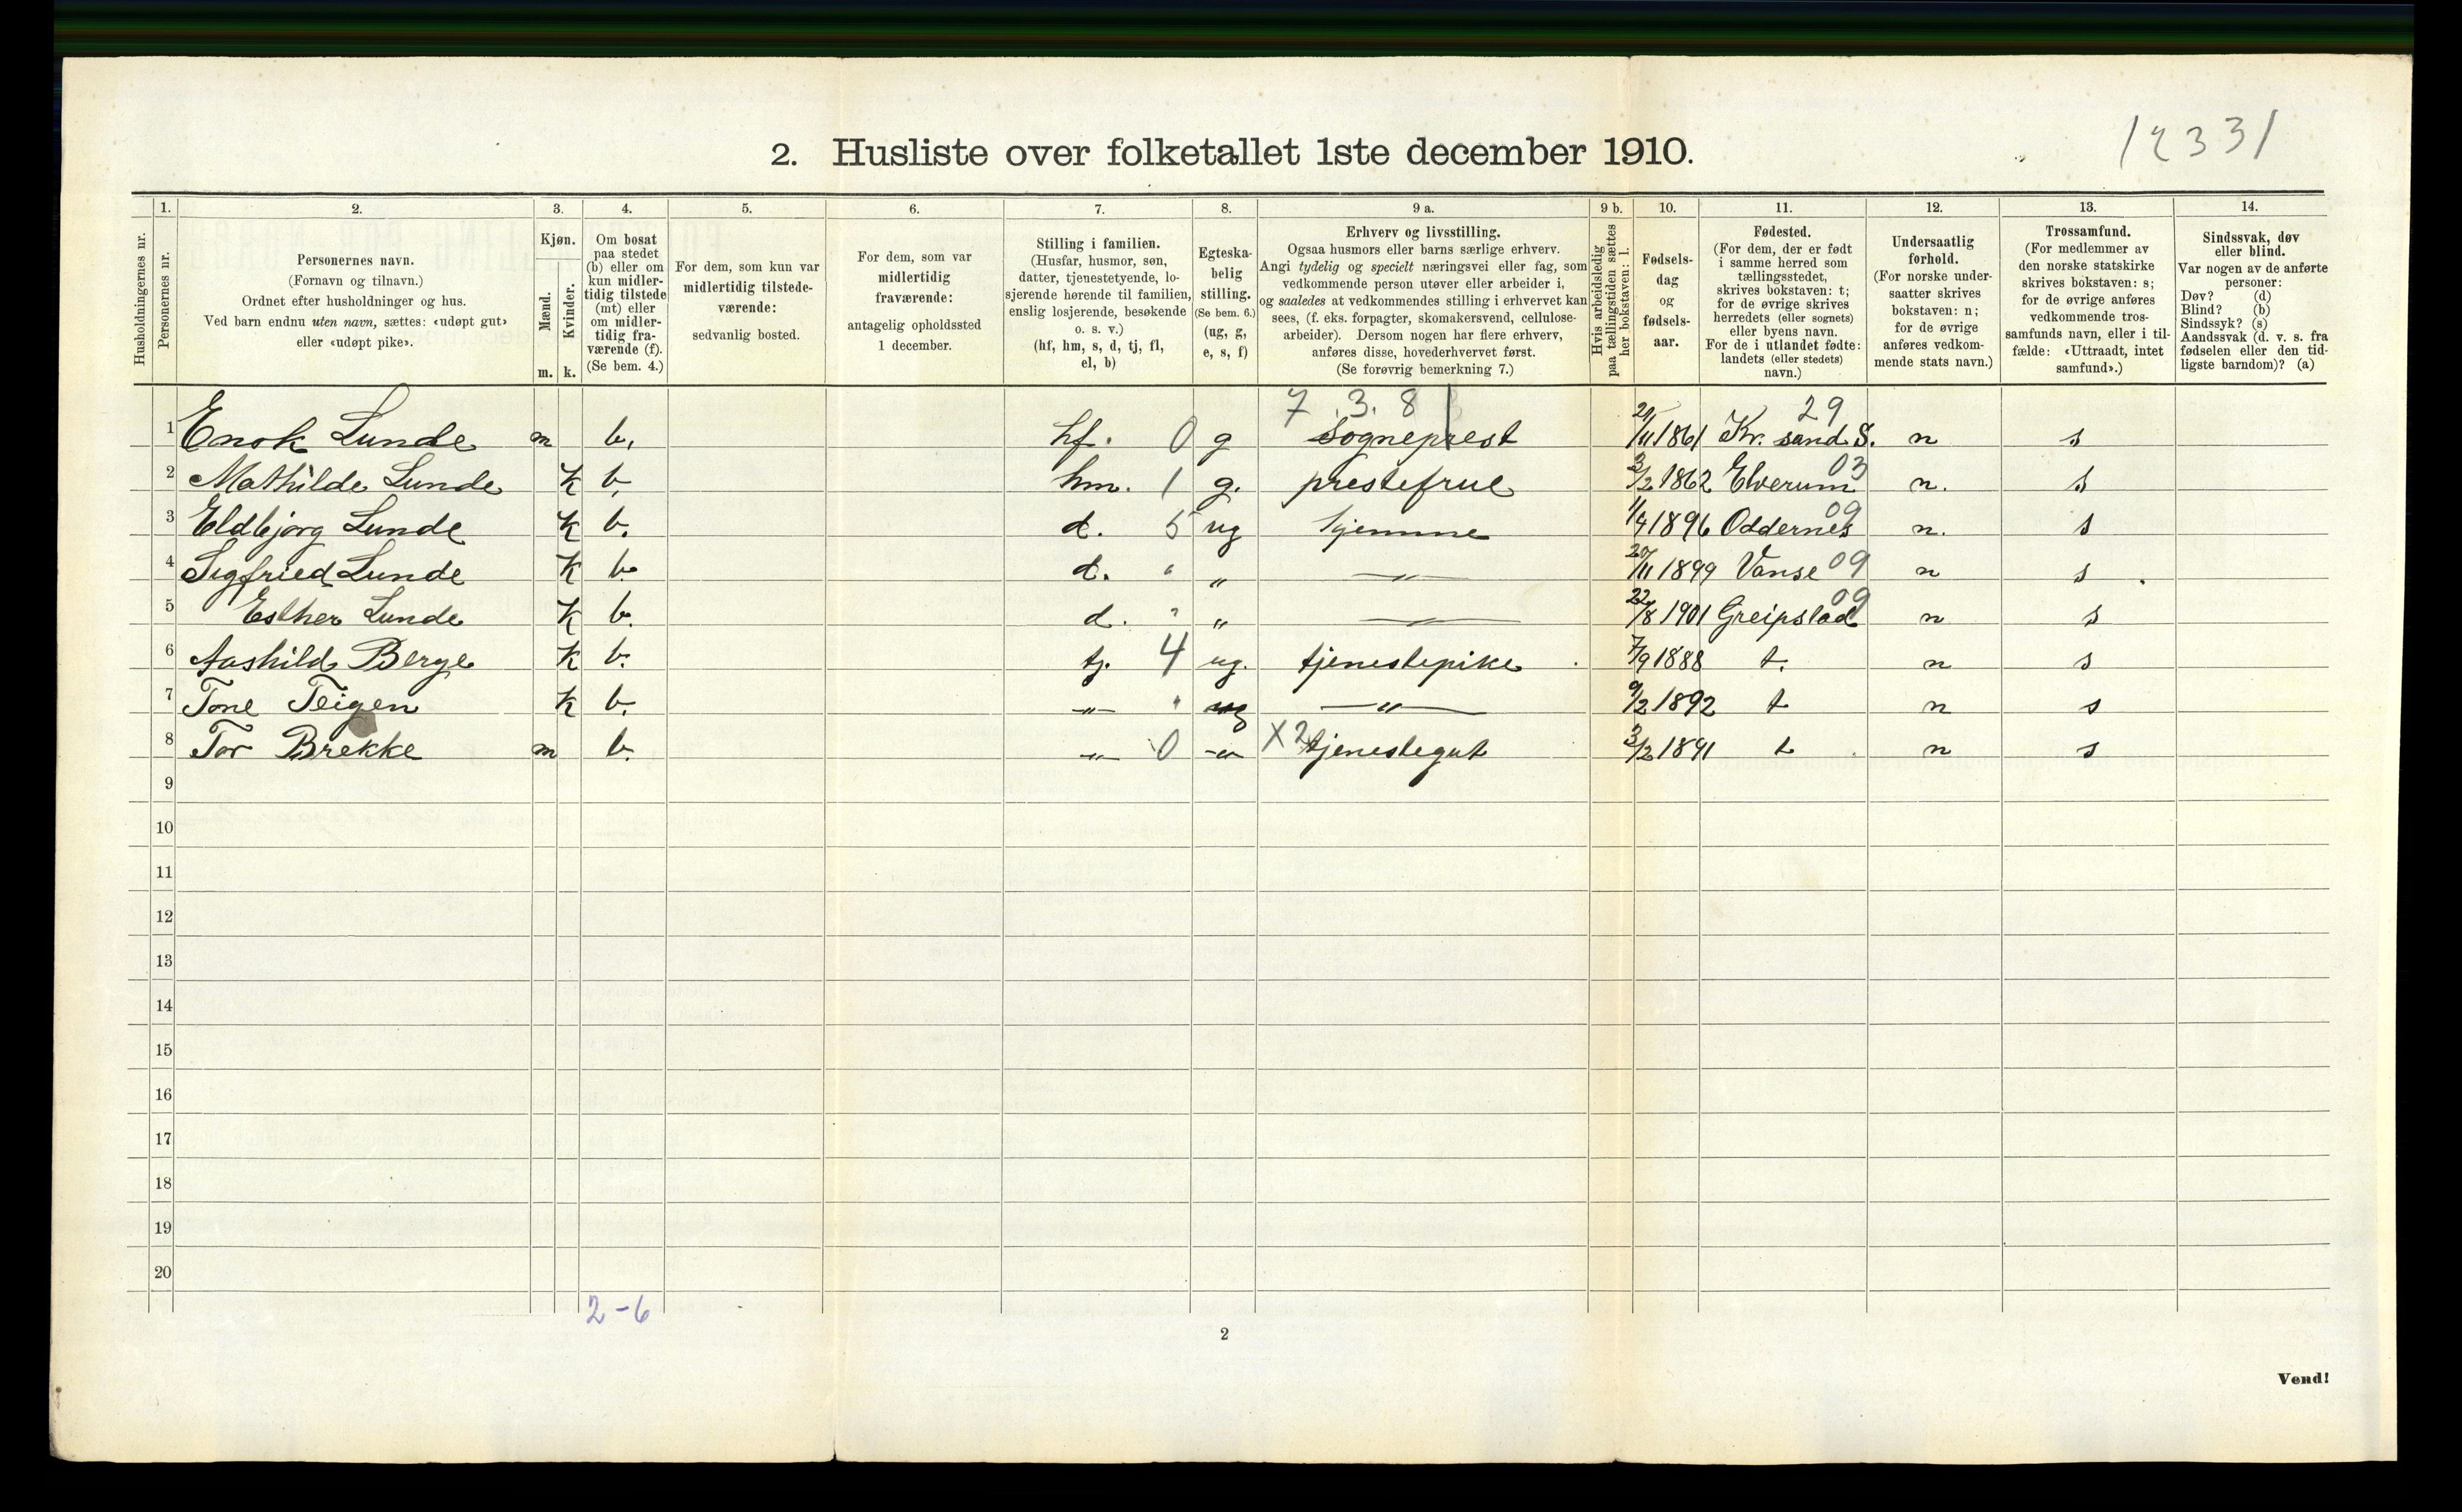 12331
2. Husliste over folketallet 1ste december 1910.
Husholdningernes nr.
1.
Personernes nr.
2.
Personernes navn.
(Fornavn og tilnavn.)
Ordnet efter husholdninger og hus.
Ved barn endnu uten navn, sættes: «udøpt gut»
eller «udøpt pike».
3.
Kjøn.
Mænd.
Kvinder.
m. k.
4.
Om bosat
paa stedet
(b) eller om
kun midler-
tidig tilstede
(mt) eller
om midler-
tidig fra-
værende (f).
(Se bem. 4.)
5.
For dem, som kun var
midlertidig tilstede-
værende:
sedvanlig bosted.
6.
For dem, som var
midlertidig
fraværende:
antagelig opholdssted
1 december.
7.
Stilling i familien.
(Husfar, husmor, søn,
datter, tjenestetyende, lo-
sjerende hørende til familien,
enslig losjerende, besøkende
o. s. v.)
(hf, hm, s, d, tj, fl,
el, b)
8.
Egteska-
belig
stilling.
(Se bem. 6.)
(ug, g,
e, s, f)
9 a.
Erhverv og livsstilling.
Ogsaa husmors eller barns særlige erhverv.
Angi tydelig og specielt næringsvei eller fag, som
vedkommende person utøver eller arbeider i,
og saaledes at vedkommendes stilling i erhvervet kan
sees, (f. eks. forpagter, skomakersvend, cellulose-
arbeider). Dersom nogen har flere erhverv,
anføres disse, hovederhvervet først.
(Se forøvrig bemerkning 7.)
9 b.
Hvis arbeidsledig
paa tællingstiden sættes
her bokstaven: l.
10.
Fødsels-
dag
og
fødsels-
aar.
11.
Fødested.
(For dem, der er født
i samme herred som
tællingsstedet,
skrives bokstaven: t;
for de øvrige skrives
herredets (eller sognets)
eller byens navn.
For de i utlandet fødte:
landets (eller stedets)
navn.)
12.
Undersaatlig
forhold.
(For norske under-
saatter skrives
bokstaven: n;
for de øvrige
anføres vedkom-
mende stats navn.)
13.
Trossamfund.
(For medlemmer av
den norske statskirke
skrives bokstaven: s;
for de øvrige anføres
vedkommende tros-
samfunds navn, eller i til-
fælde: «Uttraadt, intet
samfund».)
14.
Sindssvak, døv
eller blind.
Var nogen av de anførte
personer:
Døv? (d)
Blind? (b)
Sindssyk? (s)
Aandssvak (d. v. s. fra
fødselen eller den tid-
ligste barndom)? (a)
7 . 3. 8 29
1 Enok Lunde m b. hf. 0 g Sogneprest /11 1861 Kr. sand S. n s
03
2 Mathilde Lunde K b. hm. 1 g. prestefrue 3/2 1862 Elverum n. s
09
3 Eldbjørg Lunde K b. d. 5 ug hjemme 1/4 1896 Oddernes n. s
4 Sigfried Lunde K b. d. " " —"— 20/11 1899 Vanse 09 n s
09
5 Esther Lunde K b. d. " " —"— 22/8 1901 Greipstad n s
6 Aashild Berge K b. tj. 4 ug. tjenestepike 7/9 1888 t. n s
7 Tone Teigen K b. —"— " ug —"— 9/2 1892 t n s
8 Tor Brekke m b. —"— 0 —"— X2 tjenestegut 3/2 1891 t n s
9
10
11
12
13
14
15
16
17
18
19
20
2-6
2
Vend!